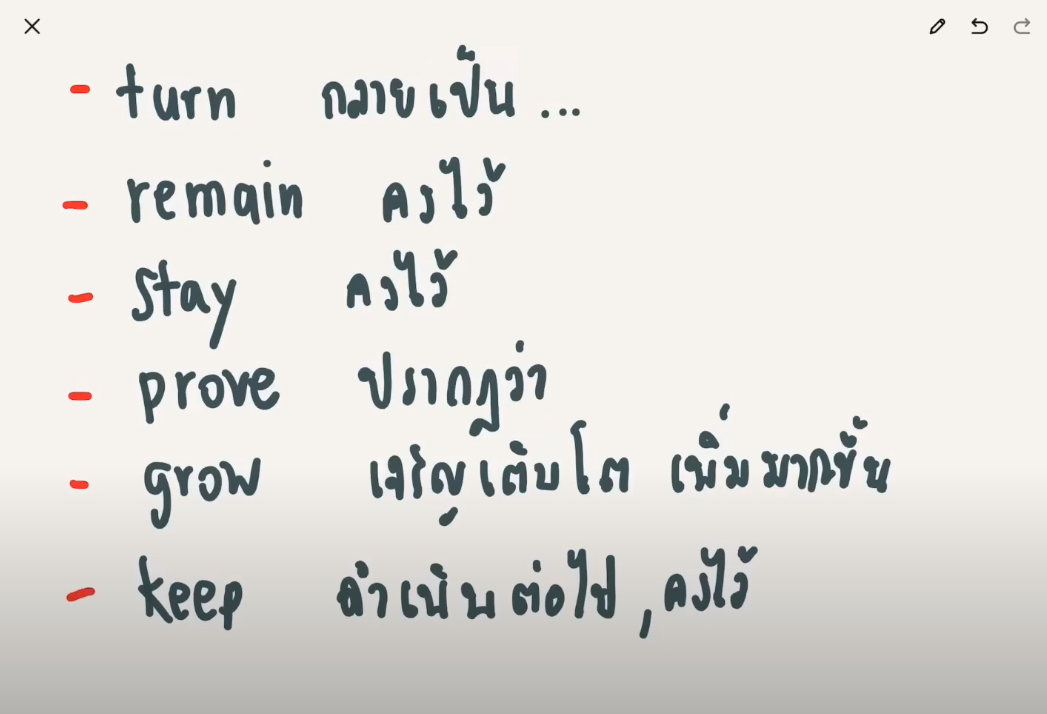 - turn กลายเป็น ...
- remain คงไว้
- stay คงไว้
- prove ปรากฎว่า
- grow เจริญเติบโต เพิ่มมากขึ้น
- keep ดำเนินต่อไป , คงไว้